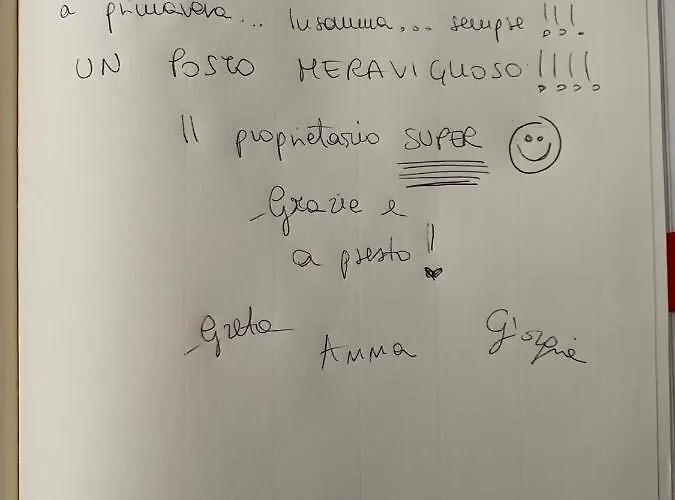 a primavera... Insomma... sempre !!!
UN POSTO MERAVIGLIOSO !!!!
Il proprietario SUPER
Grazie e
a presto !!
Greta Anna Giorgia